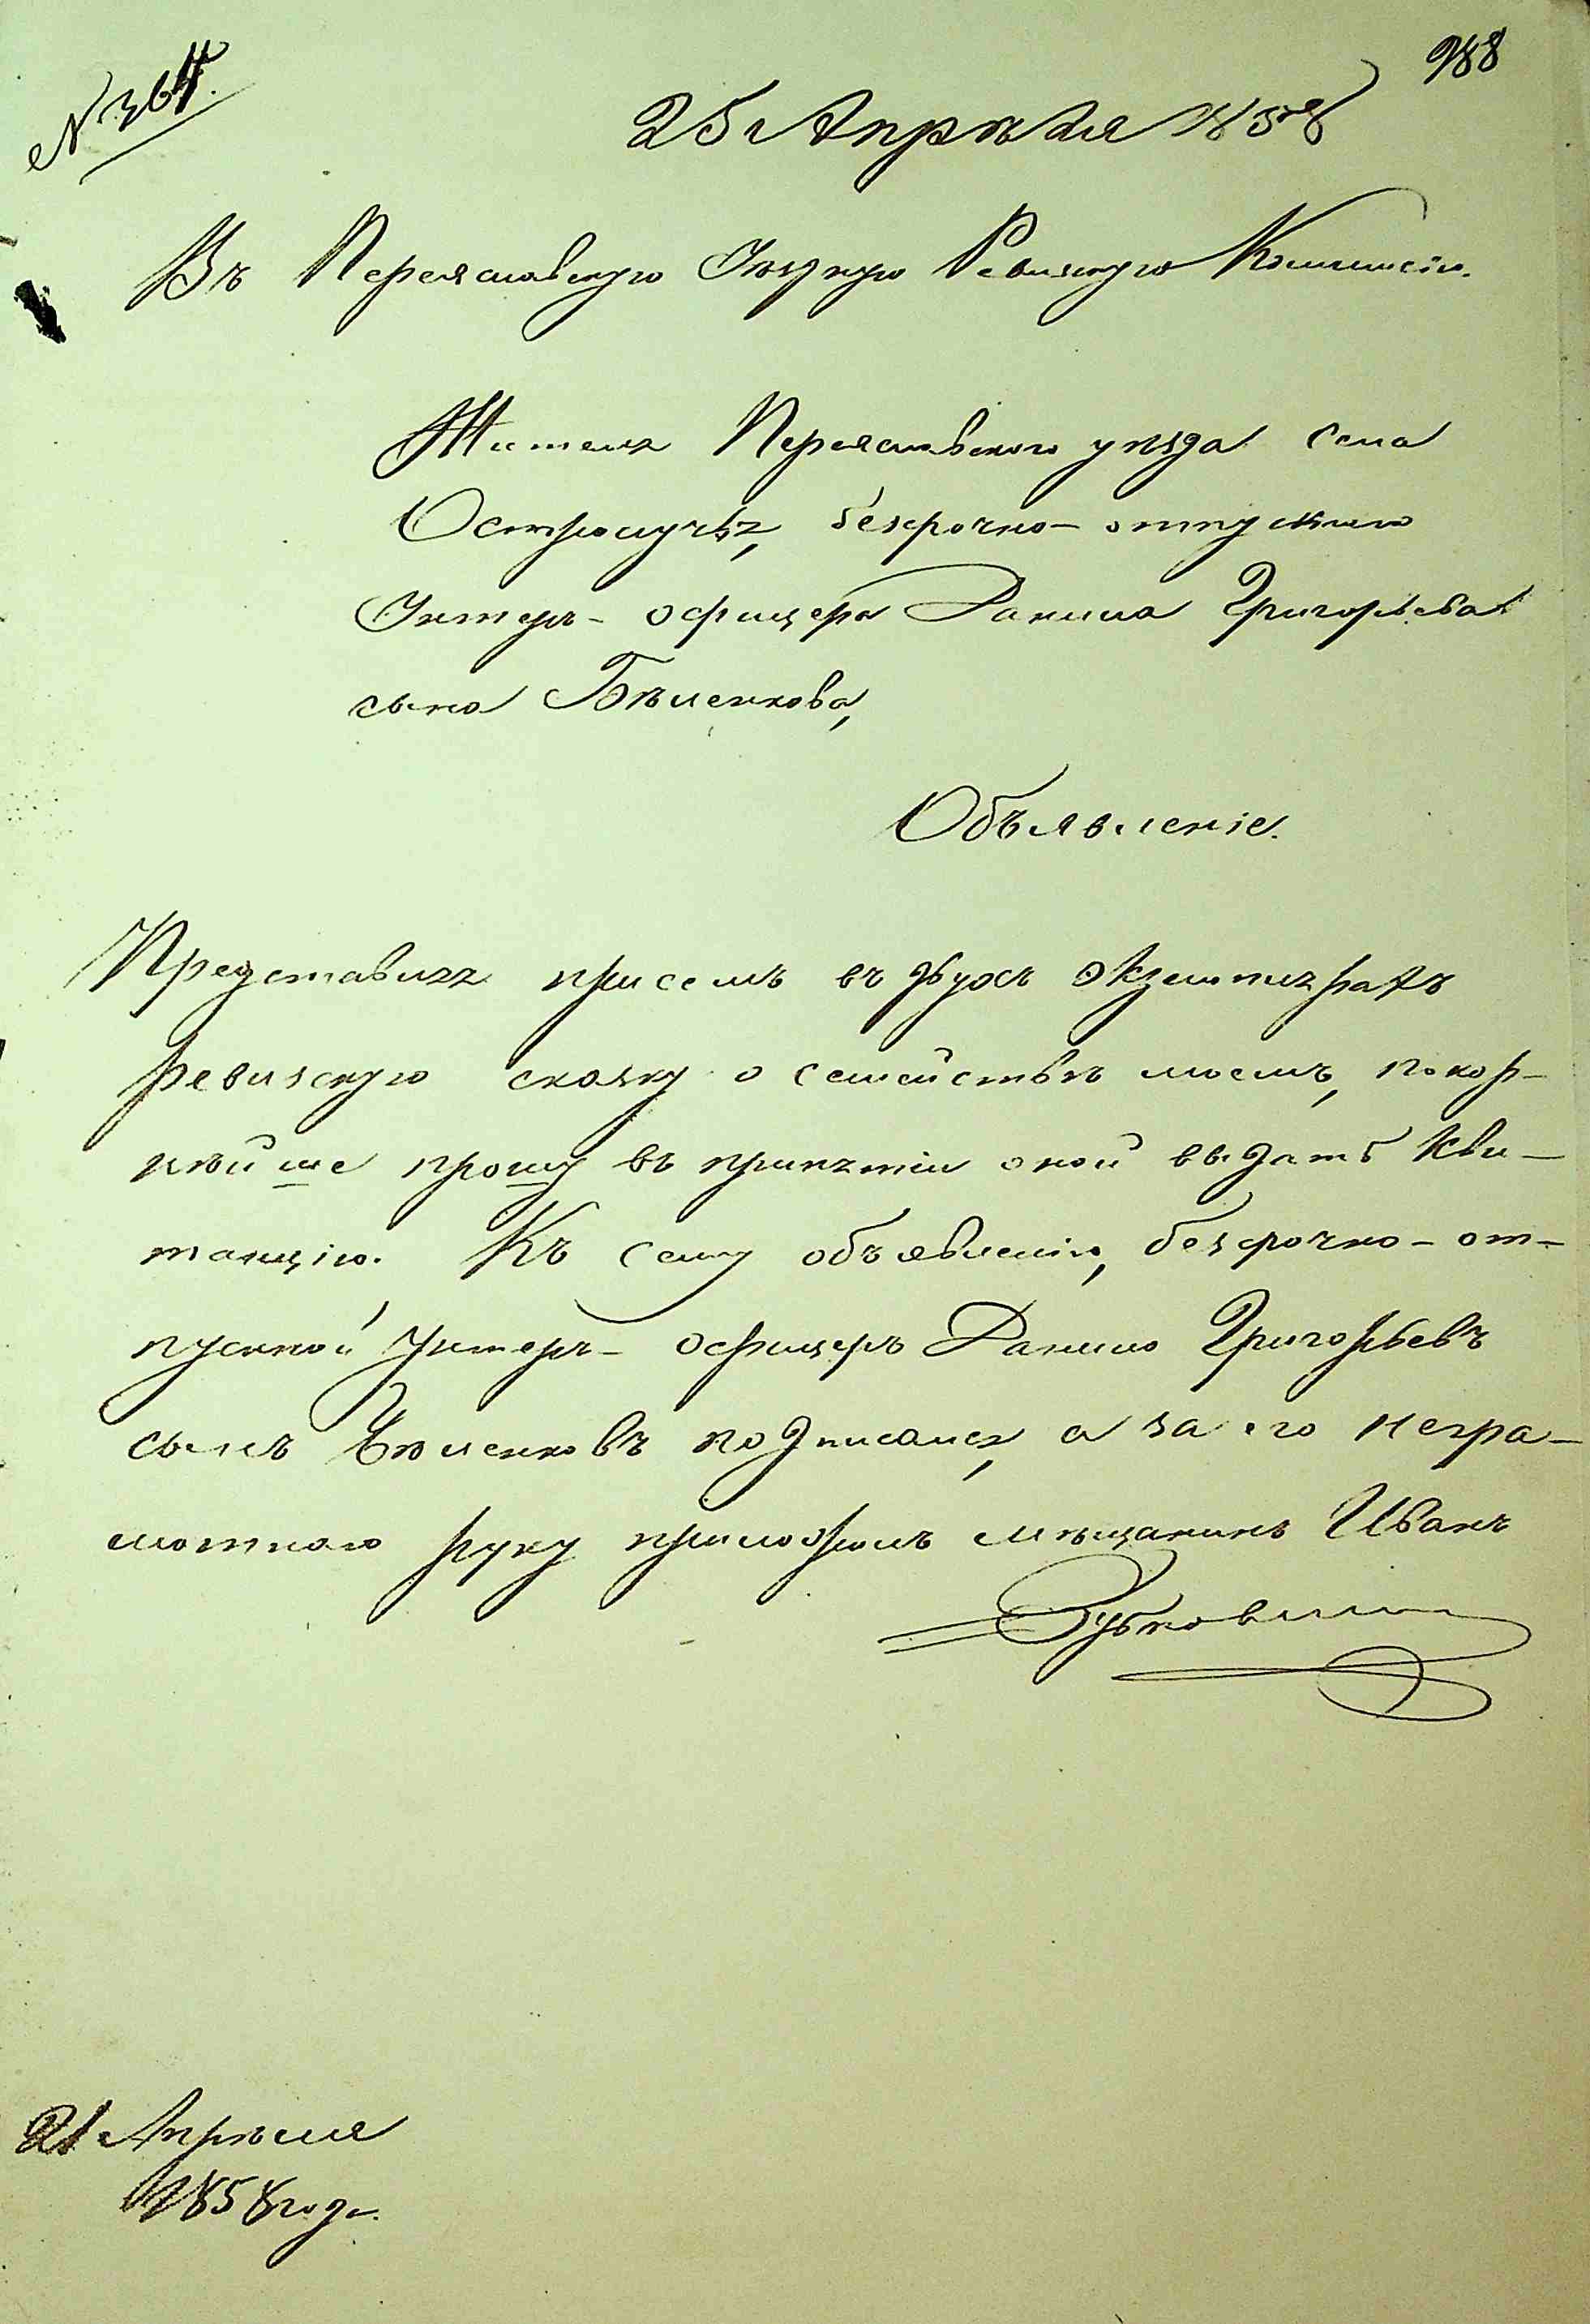 № 364.
988
25 Апрѣля 1858
Въ Переяславскую Уѣздную Ревизскую Коммисію.
Жителя Переяславского уѣзда села
Остролучья, безсрочно-отпускного
Унтеръ-офицера Данила Григорьева
сына Бѣленкова,
Объявленіе.
Представляя присемъ въ двухъ экземплярахъ
ревизскую сказку о семействѣ моемъ, покор-
нѣйше прошу въ принятіи оной выдать Кви-
танцію. Къ сему объявленію, безсрочно-от-
пускной Унтеръ-офицеръ Данило Григорьевъ
сынъ Бѣленковъ подписался, а за его негра-
мотного руку приложилъ мѣщанинъ Иванъ
21 Апрѣля
1858 года.